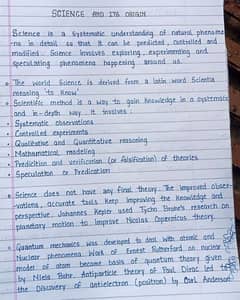 SCIENCE AND ITS ORIGIN
Science is a systematic understanding of natural phenome
-na in detail so that it can be predicted, controlled and
modified. Science involves exploring, experimenting and
speculating phenomena happening around us.
The world Science is derived from a latin word Scientia
meaning 'to know'
Scientific method is a way to gain knowledge in a systematic
and in-depth way. It involves:
Systematic observations
Controlled experiments
Qualitative and Quantitative reasoning
Mathematical modeling
Prediction and verification (or falsification) of theories
Speculation or Prediction
Science does not have any final theory. The improved obser-
-vations, accurate tools keep improving the knowledge and
perspective. Johannes Kepler used Tycho Brahe's research on
planetary motion to improve Nicolas Copernicus theory.
Quantum mechanics was developed to deal with atomic and
Nuclear phenomena. Work of Ernest Rutherford on nuclear
model of atom became basis of quantum theory given
by Niels Bohr. Antiparticle theory of Paul Dirac led to
the Discovery of antielectron (positron) by Carl Anderson